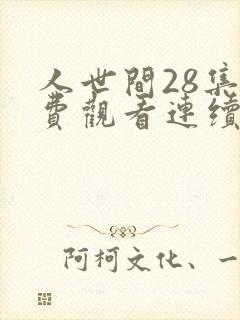 人世間28集
費觀看連續
阿柯文化、一